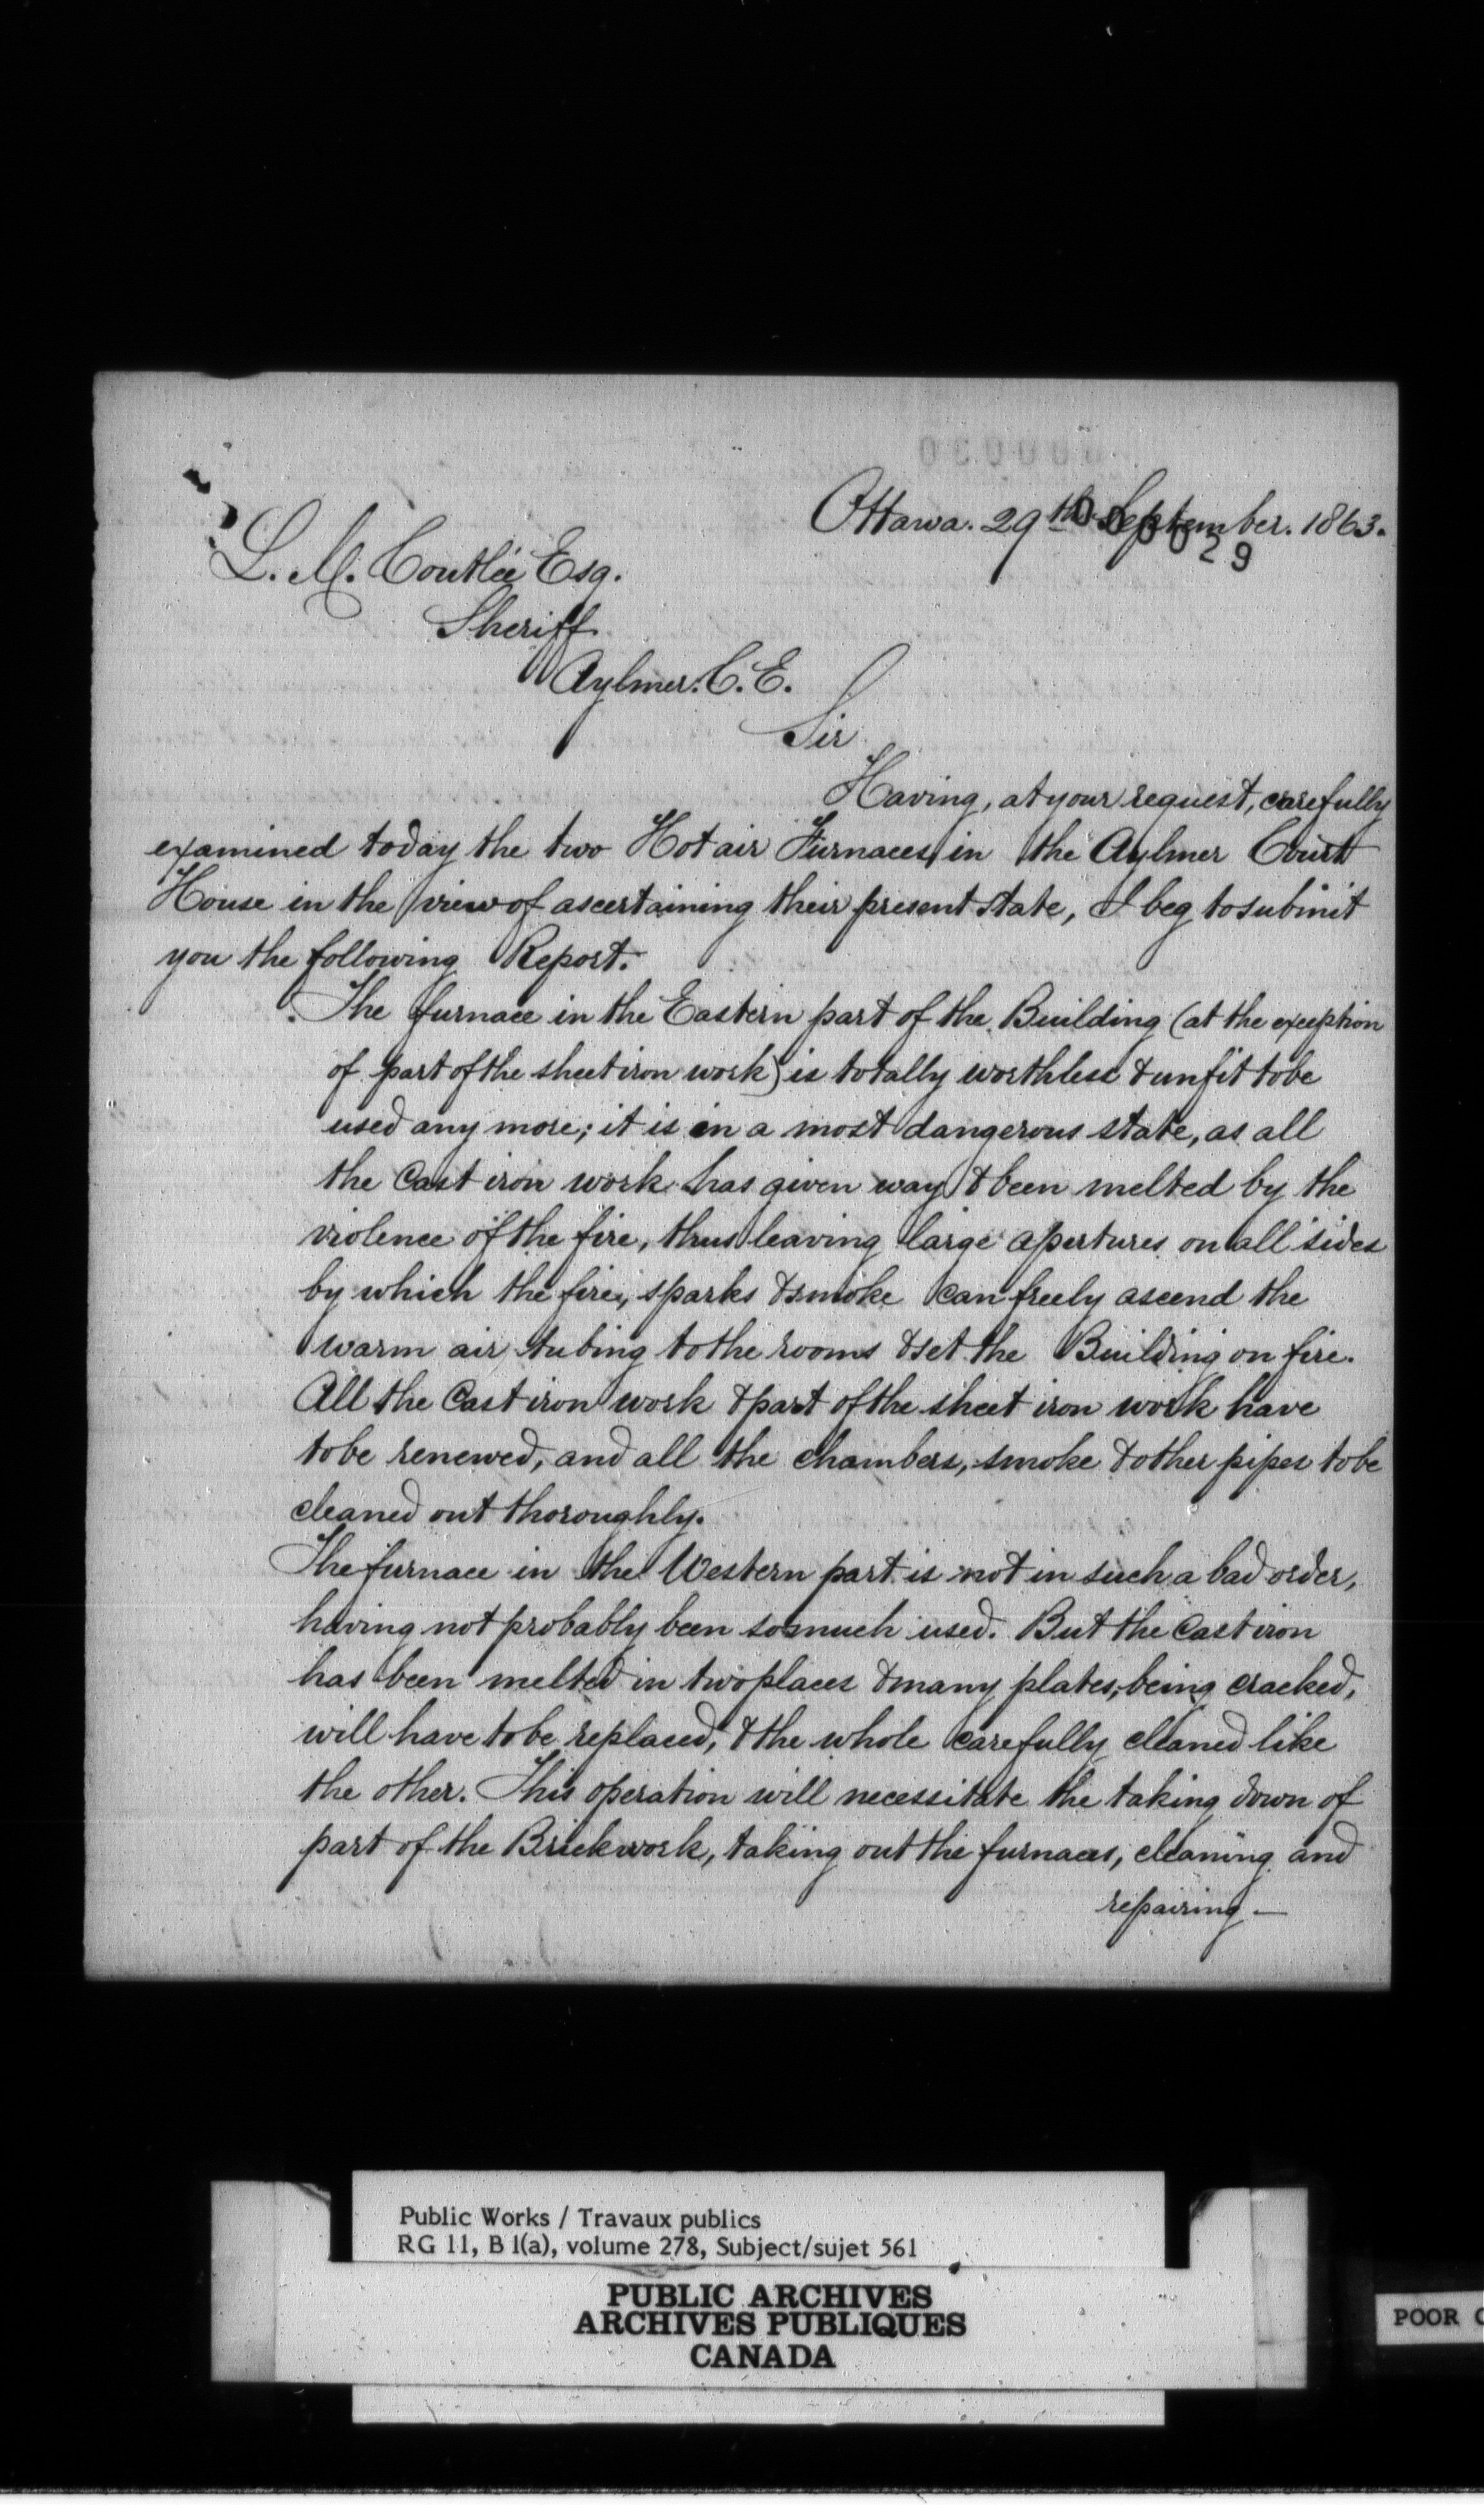 Ottawa. 29th September. 1863.
000029
L. M. Coutlée Esq.
Sheriff
Aylmer. C. E.
Sir
Having, at your request, carefully
examined today the two Hot air Furnaces in the Aylmer Court
House in the view of ascertaining their present state, I beg to submit
you the following Report.
The furnace in the Eastern part of the Building (at the exception
of part of the sheet iron work) is totally worthless & unfit to be
used any more; it is in a most dangerous state, as all
the Cast iron work has given way & been melted by the
violence of the fire, thus leaving large apertures on all sides
by which the fire, sparks & smoke can freely ascend the
warm air tubing to the rooms & set the Building on fire.
All the Cast iron work & part of the sheet iron work have
to be renewed, and all the chambers, smoke & other pipes to be
cleaned out thoroughly.
The furnace in the Western part is not in such a bad order,
having not probably been so much used. But the Cast iron
has been melted in two places & many plates, being cracked,
will have to be replaced, & the whole carefully cleaned like
the other. This operation will necessitate the taking down of
part of the Brickwork, taking out the furnaces, cleaning and
repairing —
Public Works / Travaux publics
RG 11, B 1(a), volume 278, Subject/sujet 561
PUBLIC ARCHIVES
ARCHIVES PUBLIQUES
CANADA
POOR